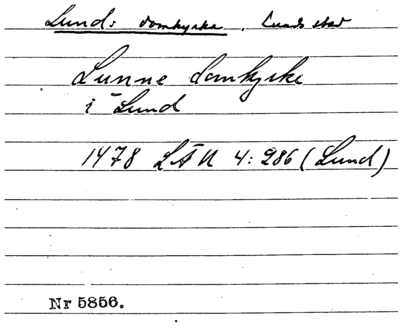 Lunds domkyrka. Lunds stad
Lunne domkyrke
i Lund
1478 LÄU 4:286 (Lund)
Nr 5856.